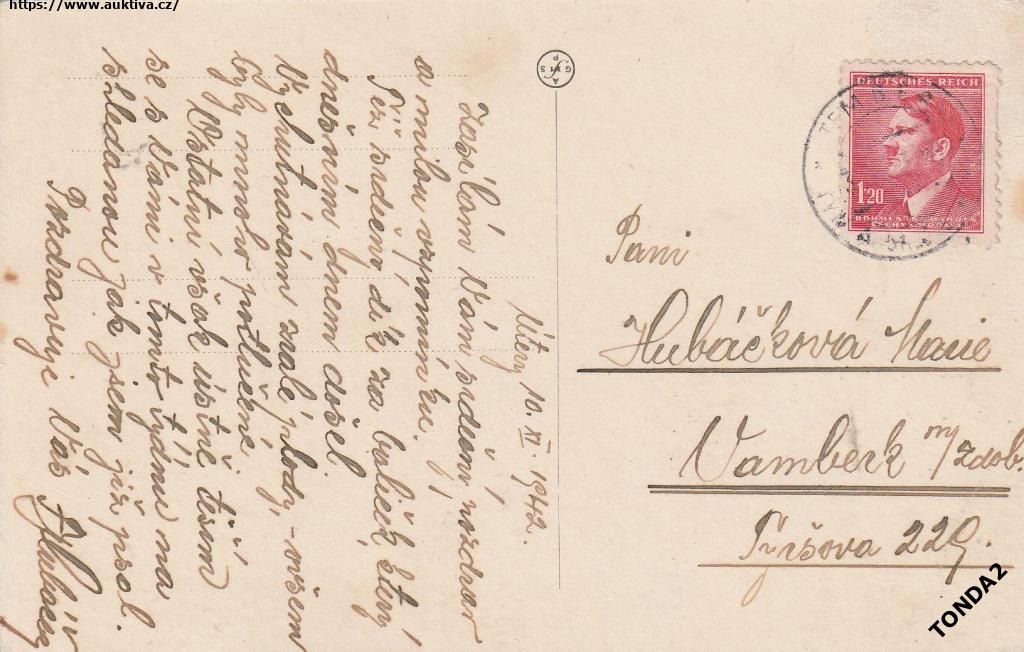 https://www.auktiva.cz/
Úterý 10. XI. 1942.
Zasílám Vám srdečný pozdrav
a milou vzpomínku.
Též srdečný dík za balíček, který
dnešním dnem došel.
Vychutnávám zralé plody, - ovšem
byly mnoho potlučené.
Ostatní však ústně těším
se s Vámi v tomto týdnu na
shledanou jak jsem již psal.
Pozdravuje Vás
DEUTSCHES REICH
1.20
BÖHMEN UND MÄHREN
ČECHY A MORAVA
Paní
Hubáčková Marie
Vamberk n/zdob.
Tyršova 229.
TONDA2